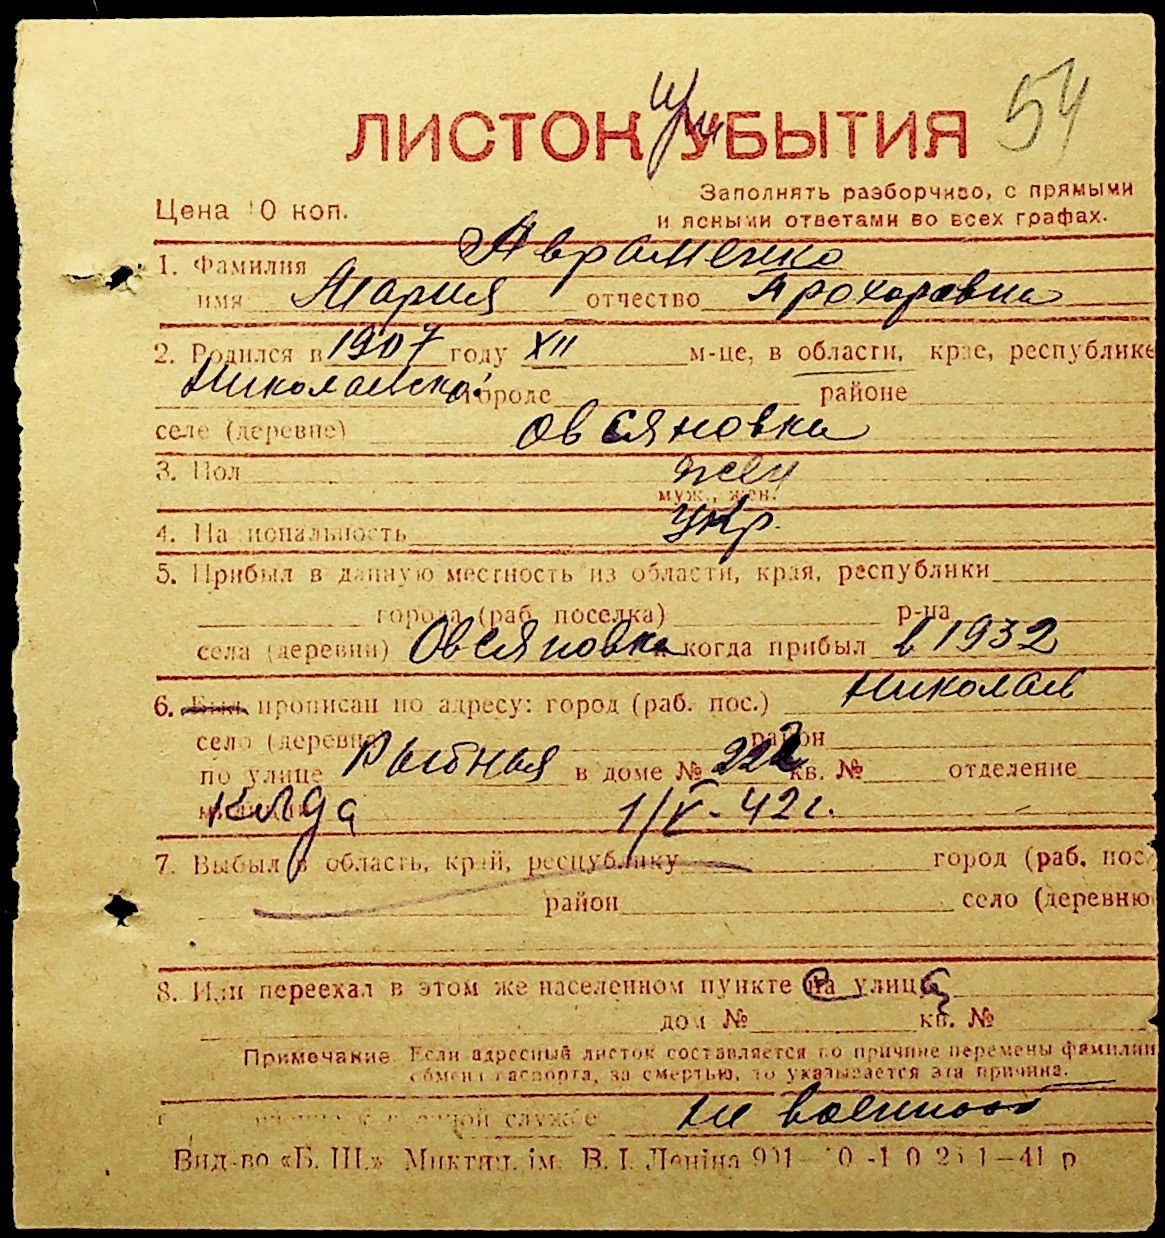 54
ЛИСТОК УБЫТИЯ
Цена 10 коп.
Заполнять разборчиво, с прямыми
и ясными ответами во всех графах.
1. Фамилия Авраменко
имя Мария отчество Прохоровна
2. Родился в 1907 году XII м-це, в области, крае, республике
Николаевской городе районе
селе (деревне) Овсяновка
3. Пол жен
муж., жен.
4. Национальность укр.
5. Прибыл в данную местность из области, края, республики
города (раб. поселка) р-на
села (деревни) Овсяновка и когда прибыл в 1932
6. Был прописан по адресу: город (раб. пос.) Николаев
село (деревня) район
по улице Рыбная в доме № 222 кв. № отделение
милиции когда 1/V-42 г.
7. Выбыл в область, край, республику город (раб. пос.
район село (деревню
8. Или переехал в этом же населенном пункте на улицу
дом № кв. №
Примечание. Если адресный листок составляется по причине перемены фамилии,
обмена паспорта, за смертью, то указывается эта причина.
службе не военнооб
Вид-во «Б. Ш.» Миктип. ім. В. І. Леніна 41 р